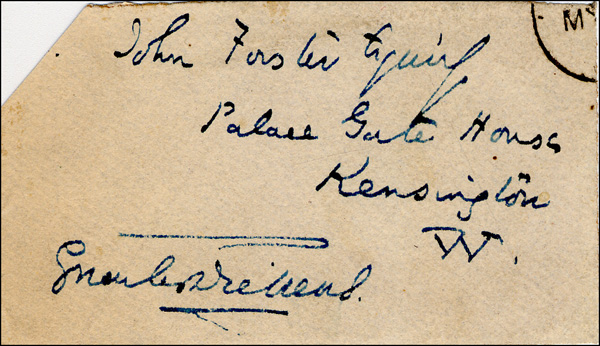 John Forster Esquire
Palace Gate House
Kensington
W.
Charles Dickens.